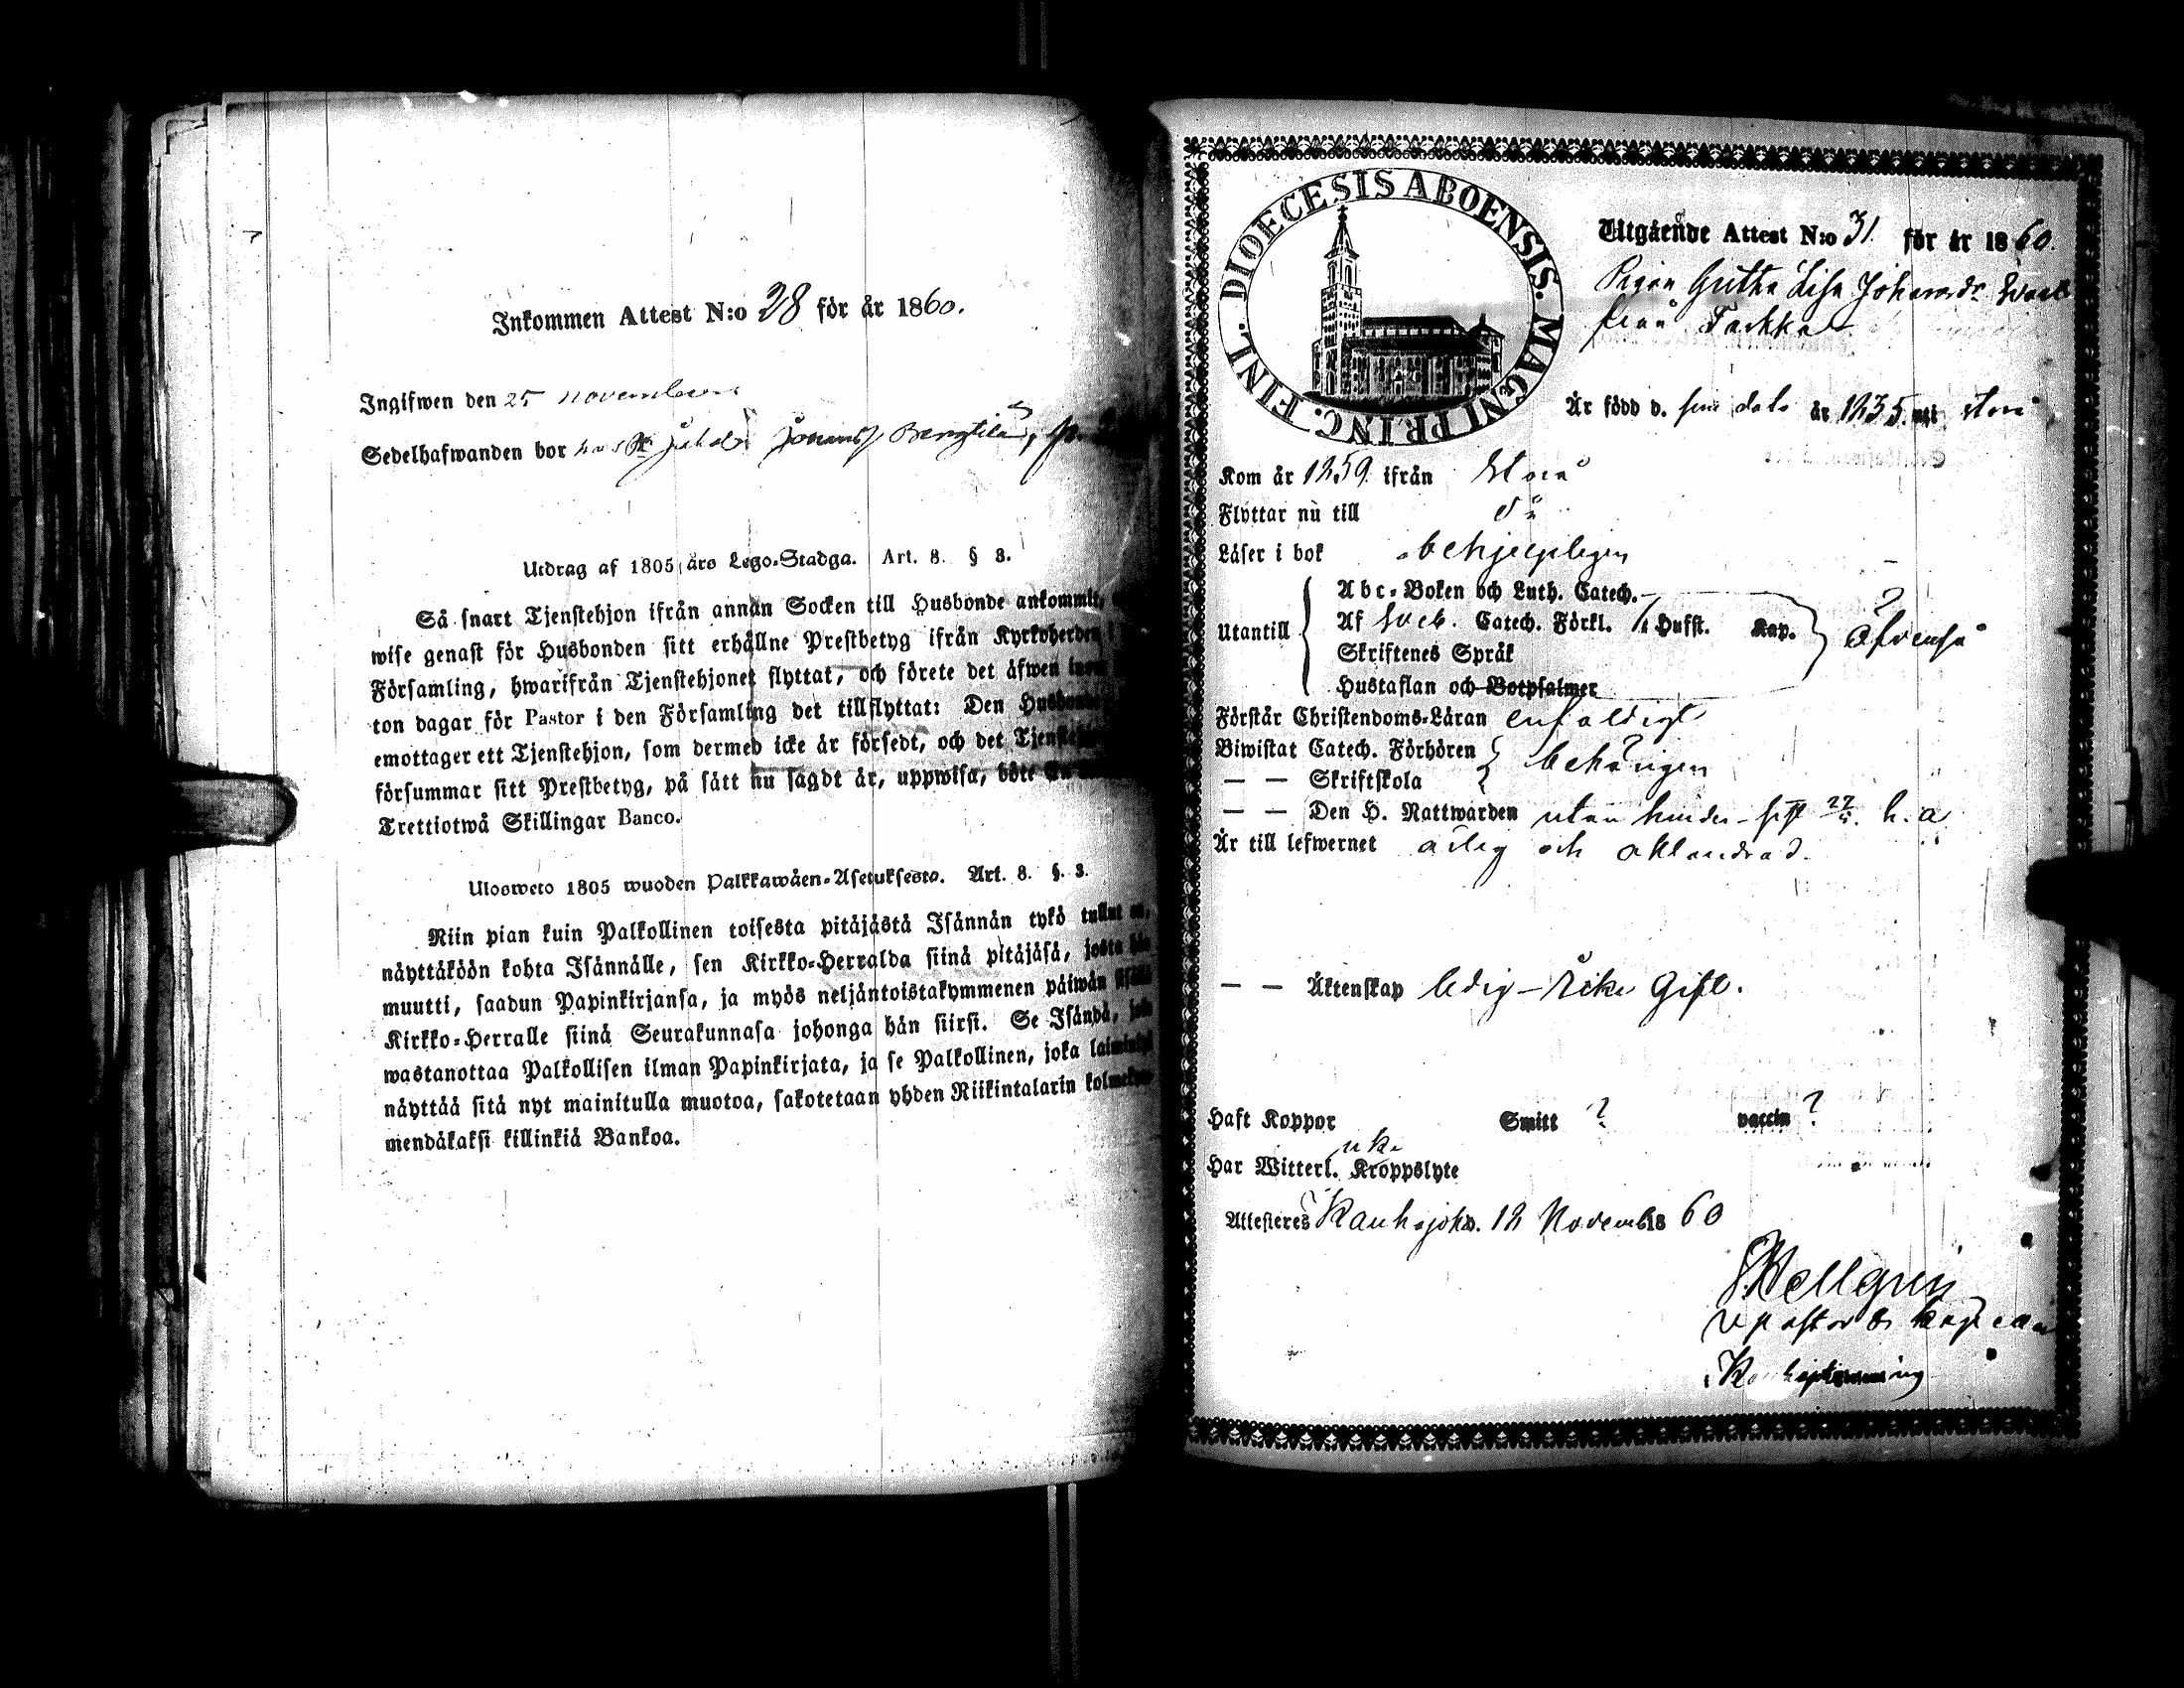 Inkommen Attest N:o 28 för år 1860.
Ingifwen den 25 november
Sedelhafwanden bor hos
Utdrag af 1805 års Lego-Stadga. Art. 8. § 3.
Så snart Tjenstehjon ifrån annan Socken till Husbonde ankommit,
wise genast för Husbonden sitt erhållne Prestbetyg ifrån Kyrkoherden
Församling, hwarifrån Tjenstehjonet flyttat, och förete det äfwen
ton dagar för Pastor i den Församling det tillflyttat: Den Husbonde
emottager ett Tjenstehjon, som dermed icke är försedt, och det
försummar sitt Prestbetyg, på sätt nu sagdt är, uppwisa, böte
Trettiotwå Skillingar Banco.
Ulosweto 1805 wuoden Palkkawäen-Asetuksesta. Art. 8. §. 3.
Niin pian kuin Palkollinen toisesta pitäjästä Isännän tykö tullut on,
näyttäköön kohta Isännälle, sen Kirkko-Herralda siinä pitäjäsä, josta hän
muutti, saadun Papinkirjansa, ja myös neljäntoistakymmenen päiwän sisällä
Kirkko-Herralle siinä Seurakunnasa johonga hän siirsi. Se Isändä, joka
wastanottaa Palkollisen ilman Papinkirjata, ja se Palkollinen, joka
näyttää sitä nyt mainitulla muotoa, sakotetaan yhden Riikintalarin
mendäkaksi killinkiä Bankoa.
DIOECESIS ABOENSIS. MAGNI PRINC. FINL.
Utgående Attest N:o 31. för år 1860.
Pigan Greta Lisa Johansdr
från
Är född d. sine dato år 1835. uti Storå
Kom år 1859. ifrån Storå
Flyttar nu till do
Läser i bok behjelpligen
Utantill
Abc-Boken och Luth. Catech.
Af Sveb. Catech. Förkl. Hufst. Kap. äfvenså
Skriftenes Språk
Hustaflan och Botpsalmer
Förstår Christendoms-Läran enfaldigt
Biwistat Catech. Förhören behörigen
— — Skriftskola
— — Den H. Nattwarden utan hinder h. a.
Är till lefwernet ärlig och oklandrad.
— — Äktenskap ledig Gift.
Haft Koppor Smitt ? vaccin ?
Har Witterl. Kroppslyte
Attesteres Kauhajoki d. 12 November 1860